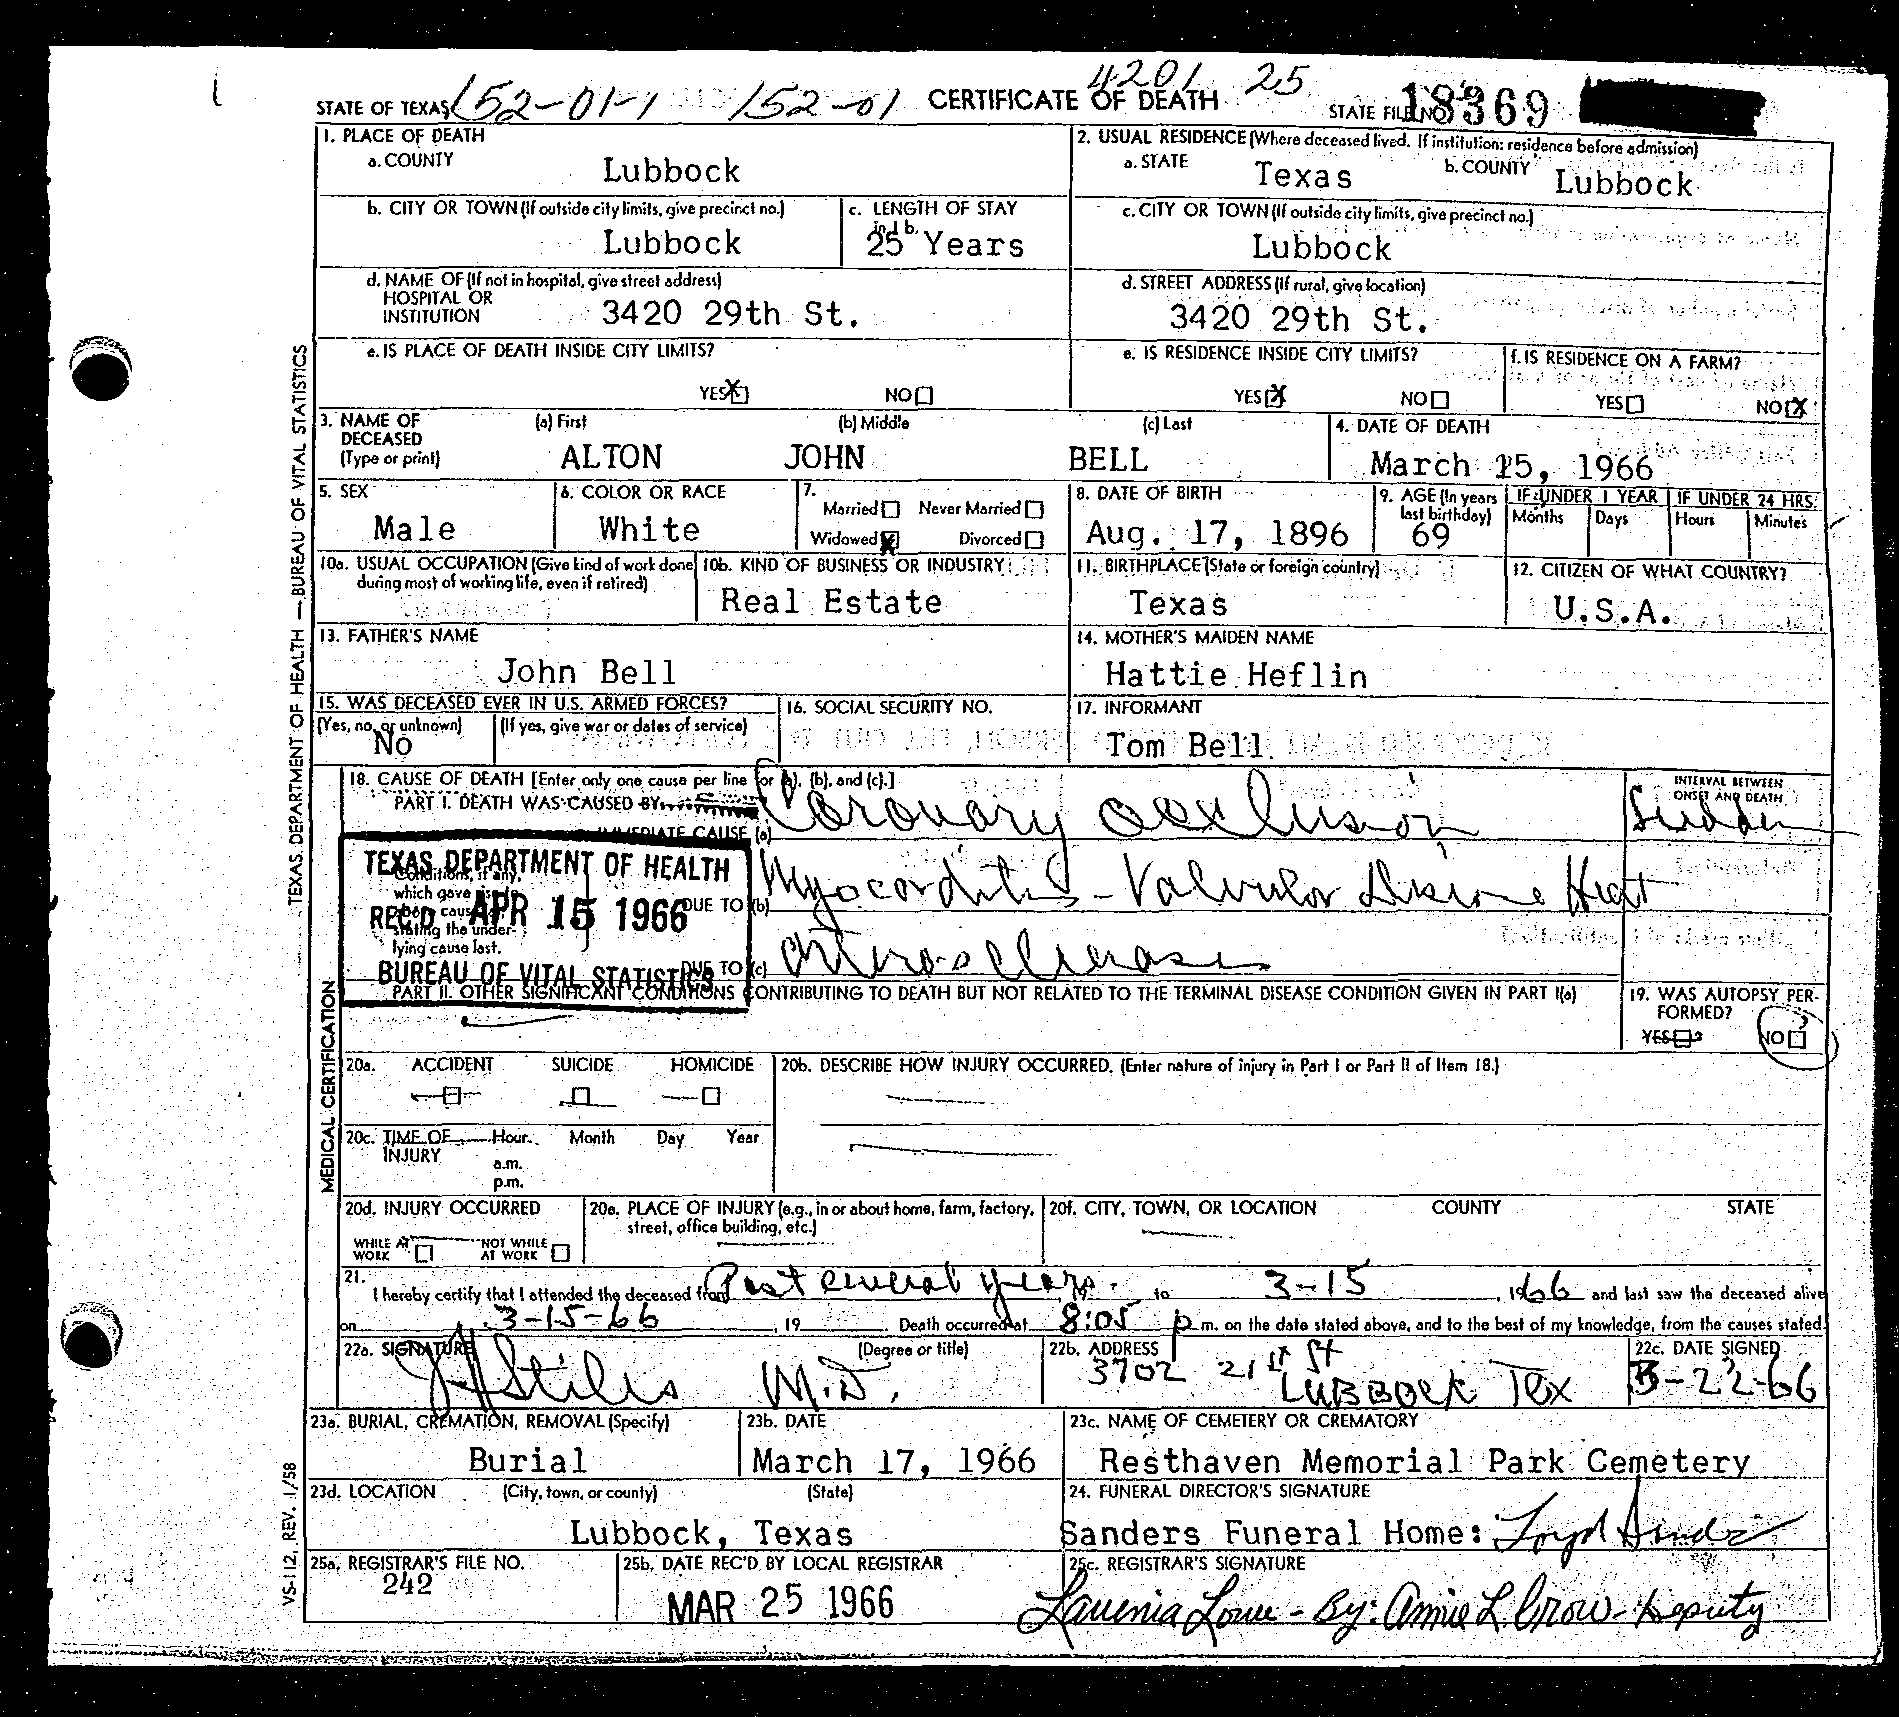 4201 25
STATE OF TEXAS 152-01-1 152-01 CERTIFICATE OF DEATH STATE FILE NO. 18369
1. PLACE OF DEATH
a. COUNTY
Lubbock
2. USUAL RESIDENCE (Where deceased lived. If institution: residence before admission)
a. STATE Texas b. COUNTY Lubbock
b. CITY OR TOWN (If outside city limits, give precinct no.)
Lubbock
c. LENGTH OF STAY
in 1 b.
25 Years
c. CITY OR TOWN (If outside city limits, give precinct no.)
Lubbock
d. NAME OF (If not in hospital, give street address)
HOSPITAL OR
INSTITUTION 3420 29th St.
d. STREET ADDRESS (If rural, give location)
3420 29th St.
e. IS PLACE OF DEATH INSIDE CITY LIMITS?
YES X NO
e. IS RESIDENCE INSIDE CITY LIMITS?
YES X NO
f. IS RESIDENCE ON A FARM?
YES NO X
3. NAME OF
DECEASED
(Type or print)
(a) First (b) Middle (c) Last
ALTON JOHN BELL
4. DATE OF DEATH
March 15, 1966
5. SEX
Male
6. COLOR OR RACE
White
7.
Married Never Married
Widowed X Divorced
8. DATE OF BIRTH
Aug. 17, 1896
9. AGE (In years
last birthday)
69
IF UNDER 1 YEAR IF UNDER 24 HRS.
Months Days Hours Minutes
10a. USUAL OCCUPATION (Give kind of work done
during most of working life, even if retired)
10b. KIND OF BUSINESS OR INDUSTRY
Real Estate
11. BIRTHPLACE (State or foreign country)
Texas
12. CITIZEN OF WHAT COUNTRY?
U.S.A.
13. FATHER'S NAME
John Bell
14. MOTHER'S MAIDEN NAME
Hattie Heflin
15. WAS DECEASED EVER IN U.S. ARMED FORCES?
(Yes, no, or unknown) (If yes, give war or dates of service)
No
16. SOCIAL SECURITY NO.
17. INFORMANT
Tom Bell
18. CAUSE OF DEATH [Enter only one cause per line for (a), (b), and (c).]
PART I. DEATH WAS CAUSED BY:
IMMEDIATE CAUSE (a) Coronary occlusion
INTERVAL BETWEEN
ONSET AND DEATH
Sudden
Conditions, if any,
which gave rise to
cause
stating the under-
lying cause last.
DUE TO (b) Myocarditis - Valvular Disease Heart
DUE TO (c) Arteriosclerosis
TEXAS DEPARTMENT OF HEALTH
REC'D APR 15 1966
BUREAU OF VITAL STATISTICS
PART II. OTHER SIGNIFICANT CONDITIONS CONTRIBUTING TO DEATH BUT NOT RELATED TO THE TERMINAL DISEASE CONDITION GIVEN IN PART I(a)
19. WAS AUTOPSY PER-
FORMED?
YES NO
20a. ACCIDENT SUICIDE HOMICIDE
20b. DESCRIBE HOW INJURY OCCURRED. (Enter nature of injury in Part I or Part II of Item 18.)
20c. TIME OF INJURY Hour Month Day Year
a.m.
p.m.
20d. INJURY OCCURRED
WHILE AT WORK NOT WHILE AT WORK
20e. PLACE OF INJURY (e.g., in or about home, farm, factory,
street, office building, etc.)
20f. CITY, TOWN, OR LOCATION COUNTY STATE
21.
I hereby certify that I attended the deceased from Past several years. to 3-15, 1966 and last saw the deceased alive
on 3-15-66, 19 . Death occurred at 8:05 p m. on the date stated above, and to the best of my knowledge, from the causes stated.
22a. SIGNATURE (Degree or title)
Stiles M.D.
22b. ADDRESS
3702 21st St
Lubbock Tex
22c. DATE SIGNED
3-22-66
23a. BURIAL, CREMATION, REMOVAL (Specify)
Burial
23b. DATE
March 17, 1966
23c. NAME OF CEMETERY OR CREMATORY
Resthaven Memorial Park Cemetery
23d. LOCATION (City, town, or county) (State)
Lubbock, Texas
24. FUNERAL DIRECTOR'S SIGNATURE
Sanders Funeral Home:
25a. REGISTRAR'S FILE NO.
242
25b. DATE REC'D BY LOCAL REGISTRAR
MAR 25 1966
25c. REGISTRAR'S SIGNATURE
Lavenia Lowe - By: Annie L. Crow - Deputy
TEXAS DEPARTMENT OF HEALTH — BUREAU OF VITAL STATISTICS
MEDICAL CERTIFICATION
VS-112, REV. 1/58